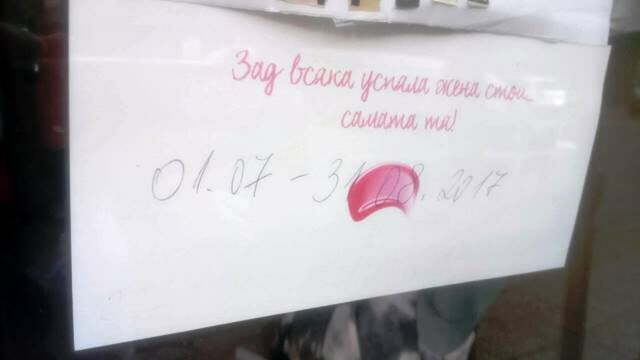 Зад всяка успяла жена стои
самата тя!
01.07 - 31.08.2017